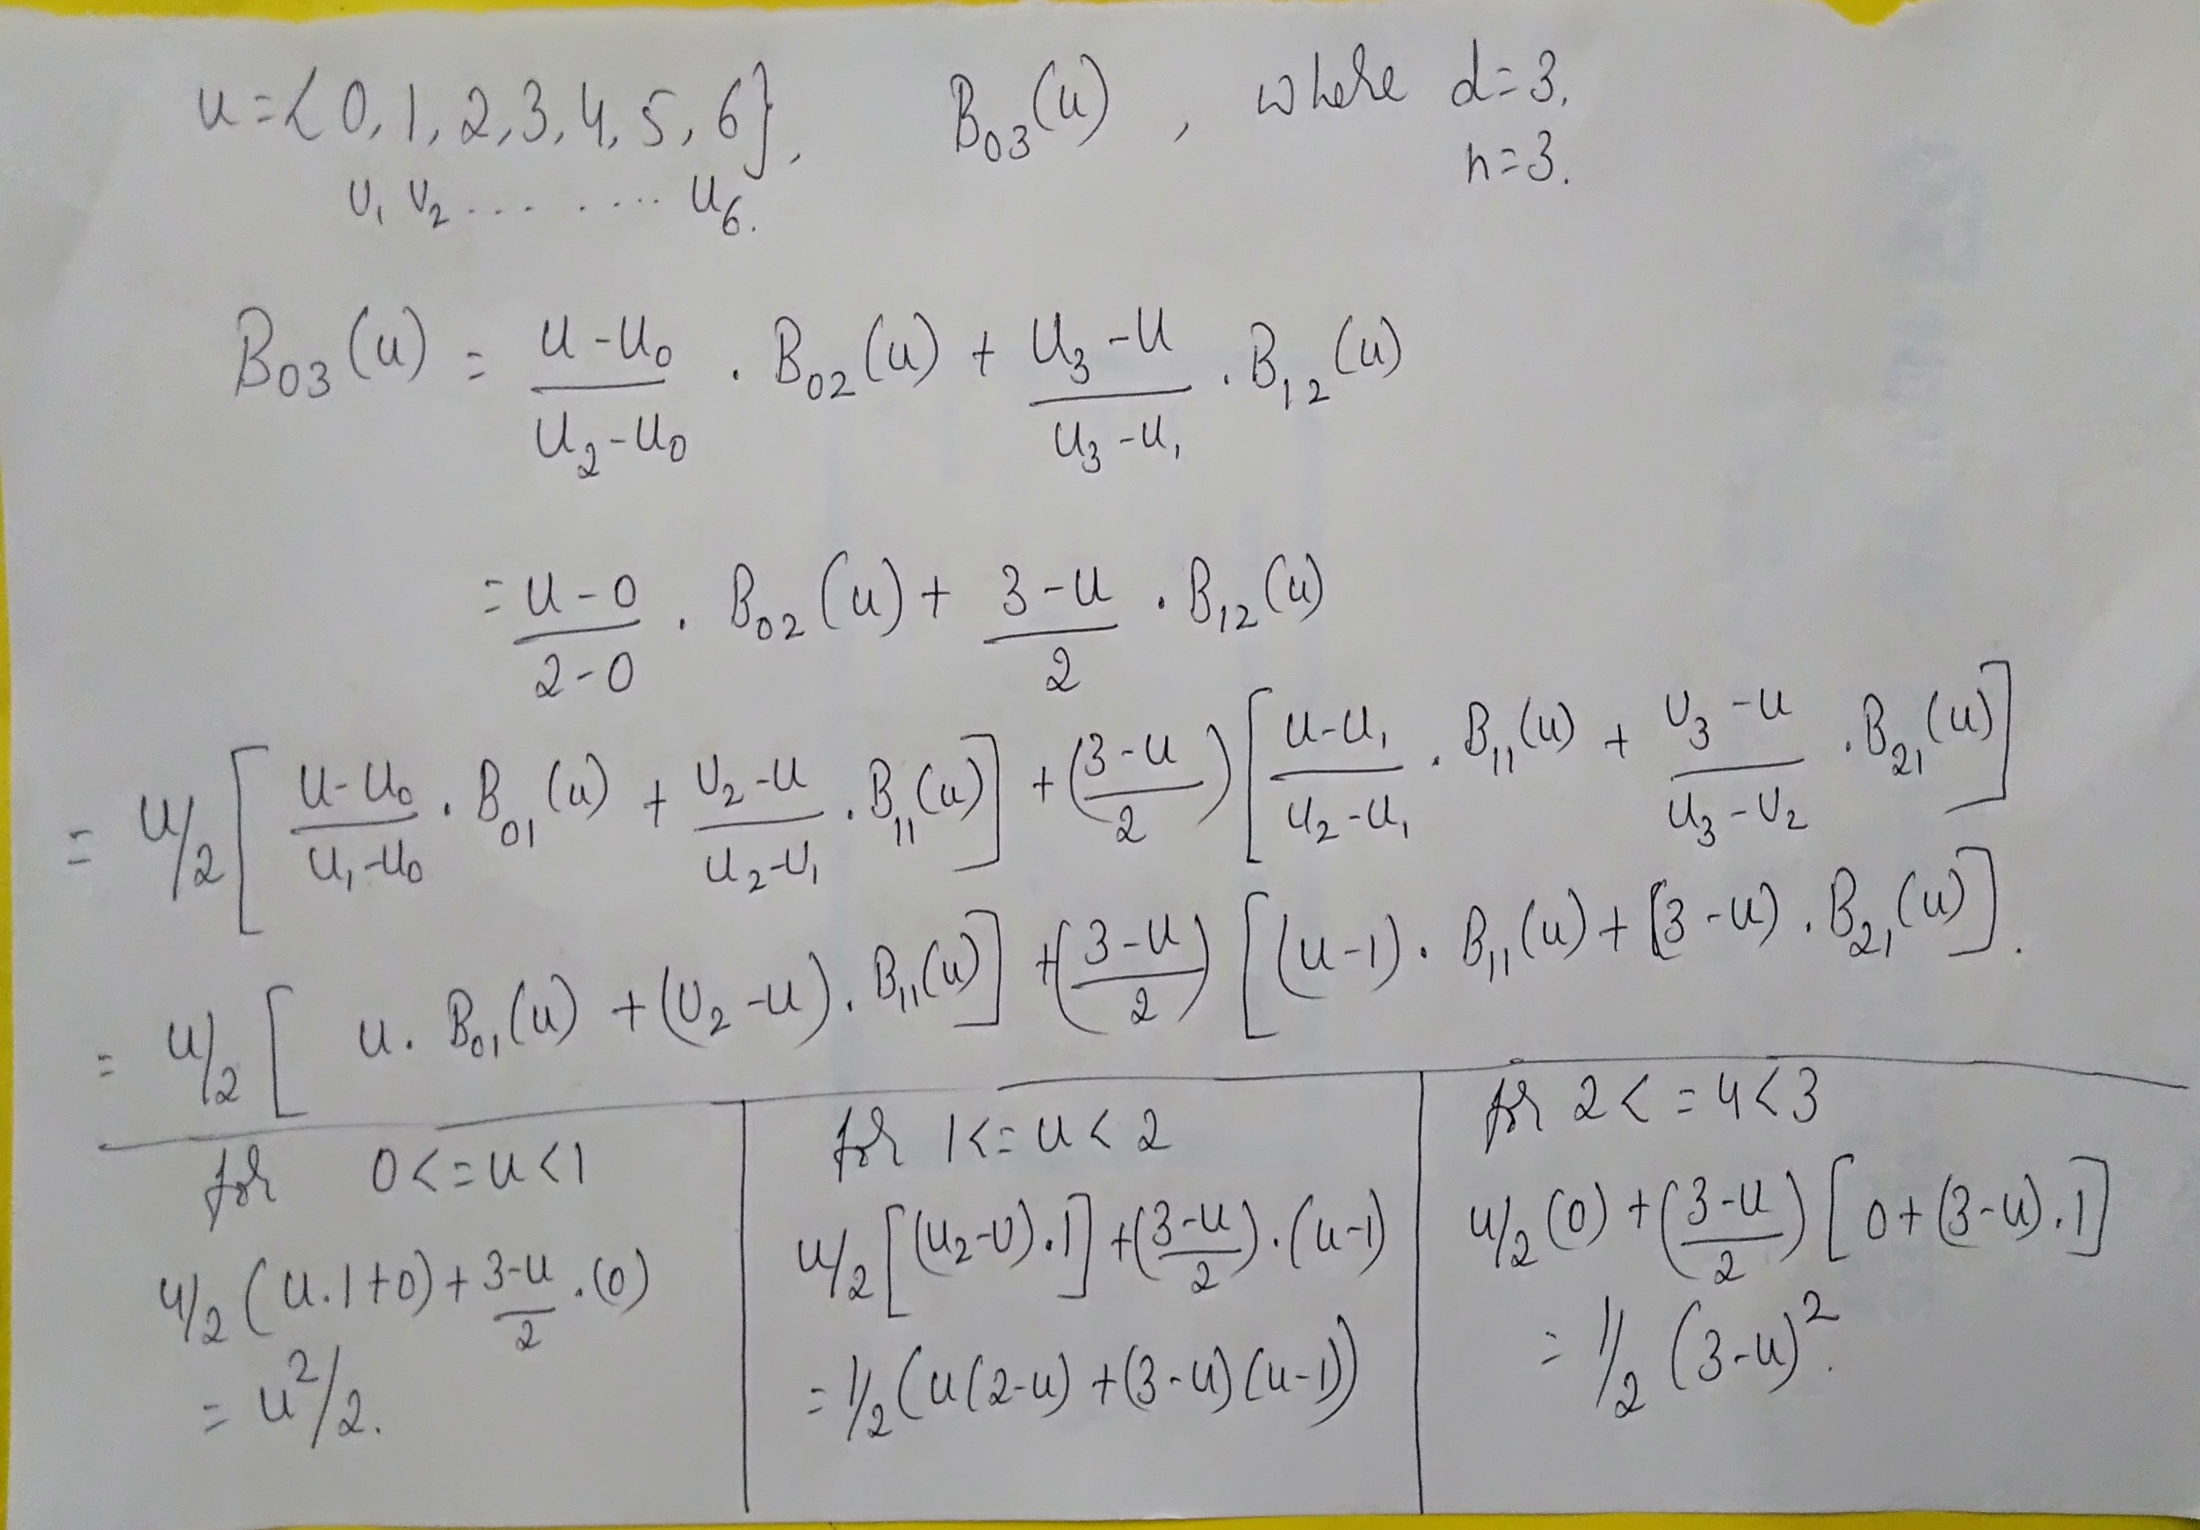 u = { 0, 1, 2, 3, 4, 5, 6 }, B₀₃(u), where d=3.
n=3.
U₁ U₂ ... .... U₆.
B₀₃(u) = (u-u₀)/(u₂-u₀) . B₀₂(u) + (u₃-u)/(u₃-u₁) . B₁₂(u)
= (u-0)/(2-0) . B₀₂(u) + (3-u)/2 . B₁₂(u)
= u/2 [ (u-u₀)/(u₁-u₀) . B₀₁(u) + (u₂-u)/(u₂-u₁) . B₁₁(u) ] + ((3-u)/2) [ (u-u₁)/(u₂-u₁) . B₁₁(u) + (u₃-u)/(u₃-u₂) . B₂₁(u) ]
= u/2 [ u. B₀₁(u) + (u₂-u). B₁₁(u) ] + ((3-u)/2) [ (u-1). B₁₁(u) + (3-u). B₂₁(u) ].
for 0<=u<1
u/2 (u.1+0) + (3-u)/2 .(0)
= u²/2.
for 1<=u<2
u/2 [(u₂-u).1] + ((3-u)/2).(u-1)
= 1/2 (u(2-u) + (3-u)(u-1))
for 2<=u<3
u/2 (0) + ((3-u)/2) [0+(3-u).1]
= 1/2 (3-u)².